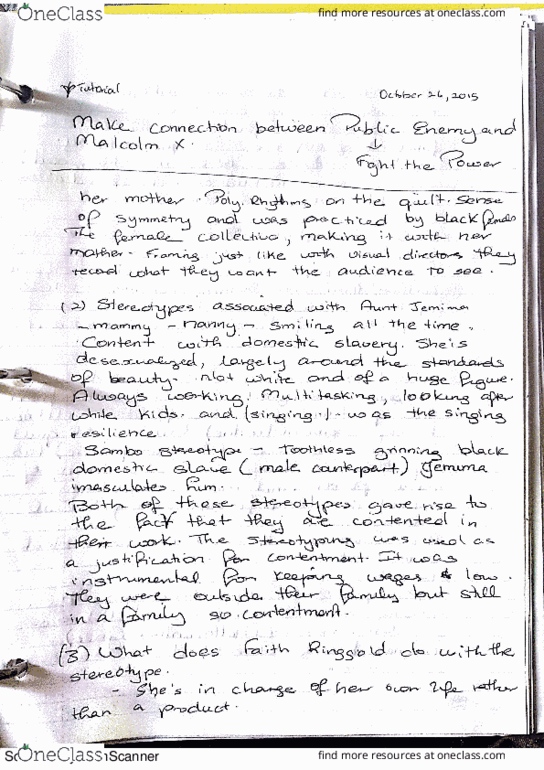 OneClass
find more resources at oneclass.com
Tutorial
October 26, 2015
Make connection between Public Enemy and
Malcolm X.
↓
Fight the Power
her mother. Poly. Rhythms on the quilt. Sense
of symmetry and was practiced by black females
The female collective, making it with her
mother. Framing just like with visual directors they
record what they want the audience to see.
(2) Stereotypes associated with Aunt Jemima
- mammy - nanny - smiling all the time.
Content with domestic slavery. She's
desexualized, largely around the standards
of beauty. Not white and of a huge figure.
Always working. Multitasking, looking after
white kids. and (singing) - was the singing
resilience
Sambo stereotype - Toothless grinning black
domestic slave (male counterpart) Jemima
imasculates him.
Both of these stereotypes gave rise to
the fact that they are contented in
their work. The stereotyping was used as
a justification for contentment. It was
instrumental for keeping wages low.
They were outside their family but still
in a family so contentment.
(3) What does Faith Ringgold do with the
stereotype.
- She's in charge of her own life rather
than a product.
OneClass Scanner
find more resources at oneclass.com